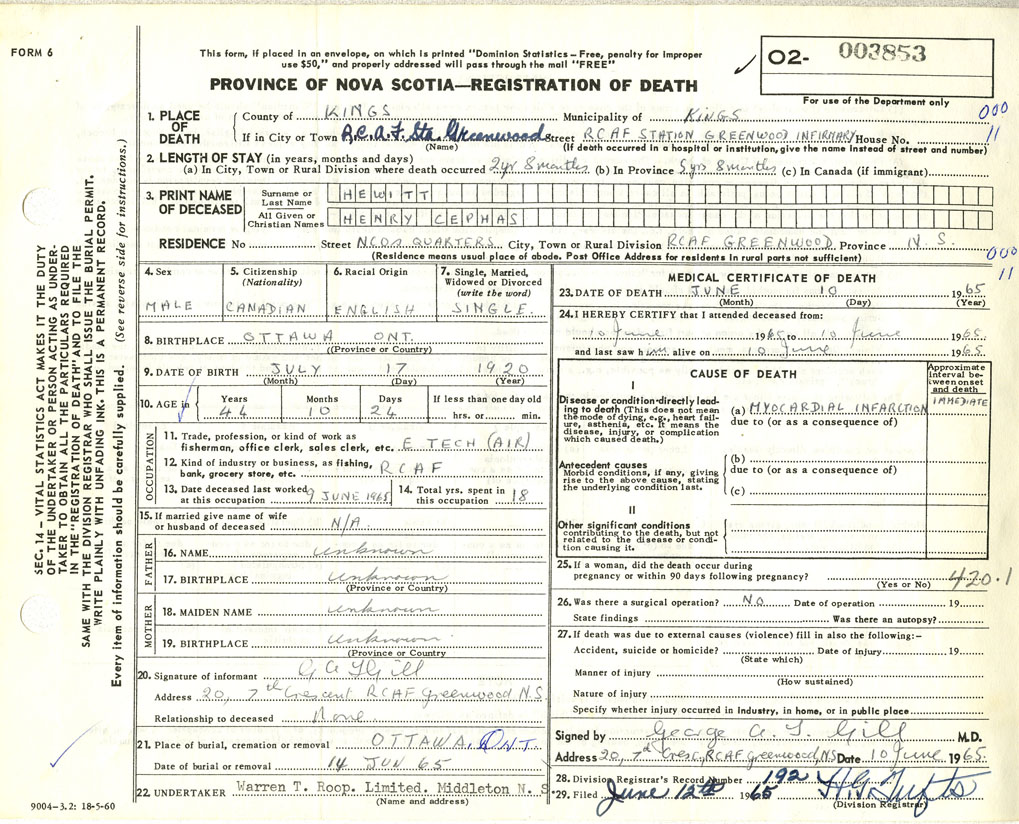 FORM 6
This form, if placed in an envelope, on which is printed "Dominion Statistics – Free, penalty for improper
use $50," and properly addressed will pass through the mail "FREE"
PROVINCE OF NOVA SCOTIA—REGISTRATION OF DEATH
O2- 003853
For use of the Department only
000
11
1. PLACE OF DEATH
County of KINGS Municipality of KINGS
If in City or Town R.C.A.F. Sta. Greenwood Street RCAF STATION GREENWOOD INFIRMARY House No.
(Name) (If death occurred in a hospital or institution, give the name instead of street and number)
2. LENGTH OF STAY (in years, months and days)
(a) In City, Town or Rural Division where death occurred 2yr 8months (b) In Province 5yrs 8months (c) In Canada (if immigrant)
3. PRINT NAME OF DECEASED
Surname or Last Name HEWITT
All Given or Christian Names HENRY CEPHAS
RESIDENCE No Street NCOs QUARTERS City, Town or Rural Division RCAF GREENWOOD Province N.S.
(Residence means usual place of abode. Post Office Address for residents in rural parts not sufficient)
000
11
4. Sex MALE
5. Citizenship (Nationality) CANADIAN
6. Racial Origin ENGLISH
7. Single, Married, Widowed or Divorced (write the word) SINGLE.
8. BIRTHPLACE OTTAWA ONT.
((Province or Country)
9. DATE OF BIRTH JULY 17 1920
(Month) (Day) (Year)
10. AGE in Years 44 Months 10 Days 24 If less than one day old hrs. or min.
OCCUPATION
11. Trade, profession, or kind of work as
fisherman, office clerk, sales clerk, etc. E TECH (AIR)
12. Kind of industry or business, as fishing,
bank, grocery store, etc. RCAF
13. Date deceased last worked at this occupation 9 JUNE 1965
14. Total yrs. spent in this occupation 18
15. If married give name of wife
or husband of deceased N/A.
FATHER
16. NAME unknown
17. BIRTHPLACE unknown
(Province or Country)
MOTHER
18. MAIDEN NAME unknown
19. BIRTHPLACE unknown
(Province or Country
20. Signature of informant G A T Gill
Address 20, 7th Crescent RCAF Greenwood N.S.
Relationship to deceased None
21. Place of burial, cremation or removal OTTAWA, ONT.
Date of burial or removal 14 JUN 65
22. UNDERTAKER Warren T. Roop. Limited. Middleton N. S
(Name and address)
9004-3.2: 18-5-60
MEDICAL CERTIFICATE OF DEATH
23. DATE OF DEATH JUNE 10 1965
(Month) (Day) (Year)
24. I HEREBY CERTIFY that I attended deceased from:
10 June 1965 to 10 June 1965
and last saw him alive on 10 June 1965
CAUSE OF DEATH
Approximate interval between onset and death
I
Disease or condition directly leading to death (This does not mean the mode of dying, e.g., heart failure, asthenia, etc. It means the disease, injury, or complication which caused death.)
(a) MYOCARDIAL INFARCTION IMMEDIATE
due to (or as a consequence of)
Antecedent causes
Morbid conditions, if any, giving rise to the above cause, stating the underlying condition last.
(b)
due to (or as a consequence of)
(c)
II
Other significant conditions
contributing to the death, but not related to the disease or condition causing it.
25. If a woman, did the death occur during
pregnancy or within 90 days following pregnancy?
(Yes or No)
420.1
26. Was there a surgical operation? NO Date of operation 19
State findings Was there an autopsy?
27. If death was due to external causes (violence) fill in also the following:–
Accident, suicide or homicide? Date of injury 19
(State which)
Manner of injury
(How sustained)
Nature of injury
Specify whether injury occurred in industry, in home, or in public place
Signed by George A. T. Gill M.D.
Address 20, 7th Cresc, RCAF Greenwood, NS Date 10 June 1965
28. Division Registrar's Record Number 192
*29. Filed June 12th 1965
(Division Registrar)
SEC. 14 – VITAL STATISTICS ACT MAKES IT THE DUTY
OF THE UNDERTAKER OR PERSON ACTING AS UNDER-
TAKER TO OBTAIN ALL THE PARTICULARS REQUIRED
IN THE "REGISTRATION OF DEATH" AND TO FILE THE
SAME WITH THE DIVISION REGISTRAR WHO SHALL ISSUE THE BURIAL PERMIT.
WRITE PLAINLY WITH UNFADING INK. THIS IS A PERMANENT RECORD.
Every item of information should be carefully supplied. (See reverse side for instructions.)